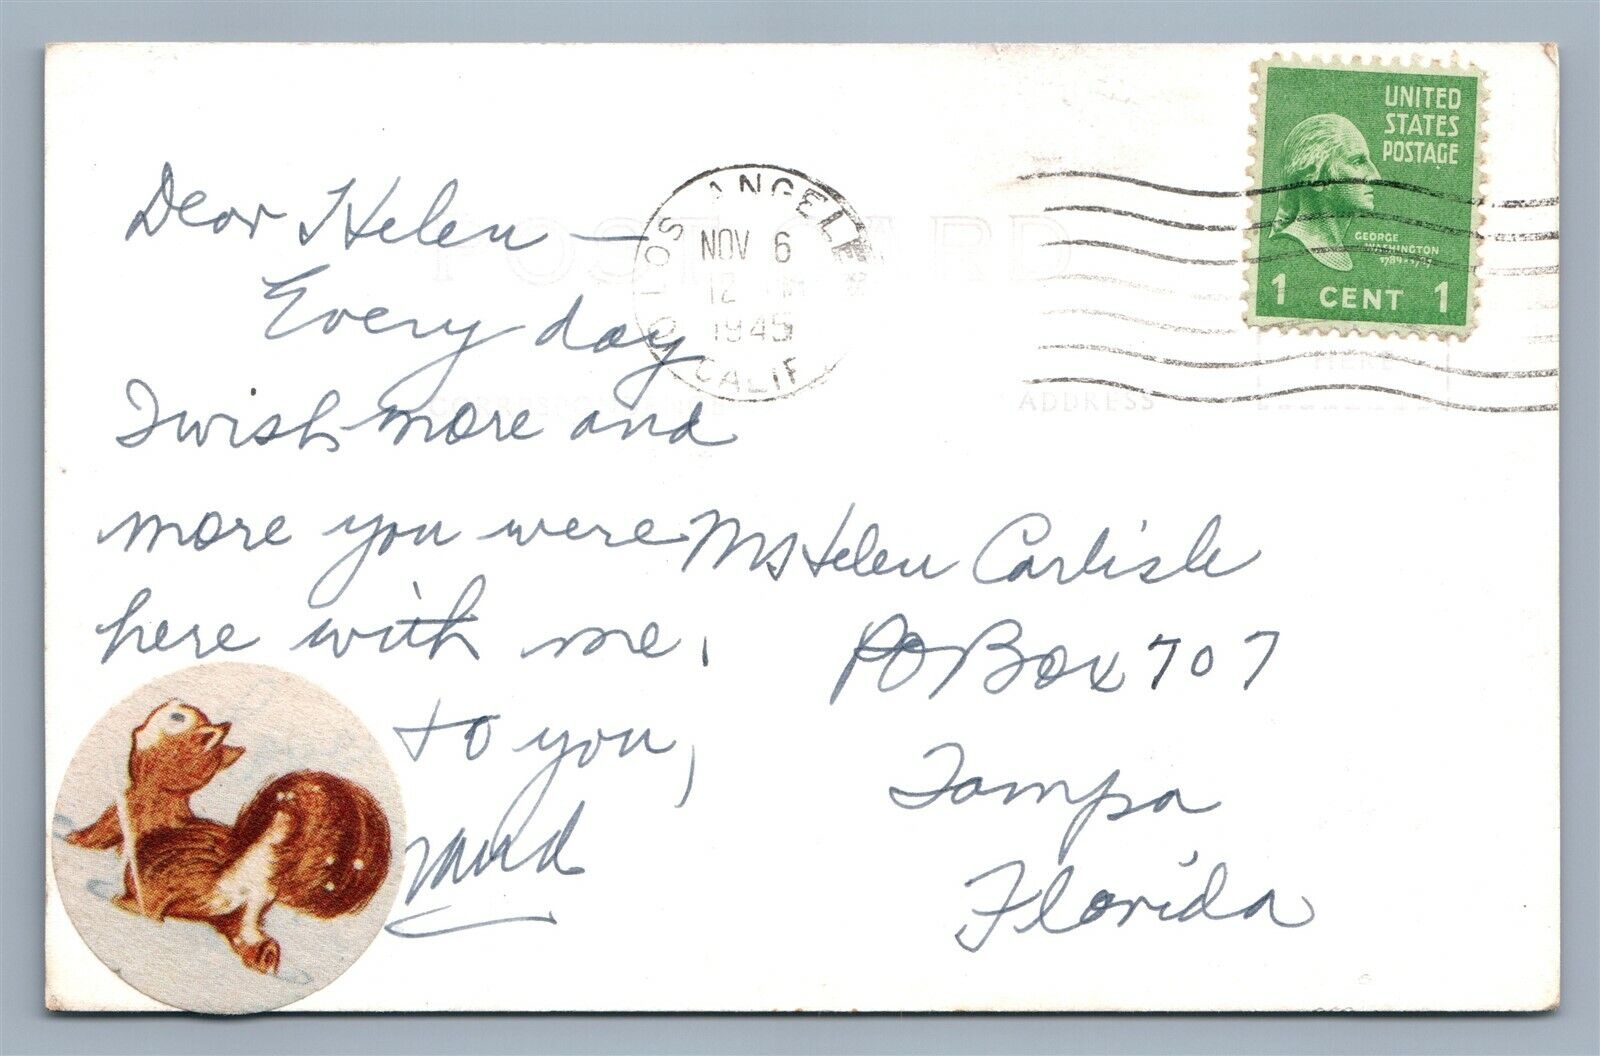 Dear Helen —
Every day
I wish more and
more you were
here with me.
to you,
UNITED
STATES
POSTAGE
GEORGE
WASHINGTON
1789-1797
1 CENT 1
LOS ANGELES
NOV 6
12
1945
CALIF
POST CARD
CORRESPONDENCE
ADDRESS
HERE
Ms Helen Carlisle
PO Box 707
Tampa
Florida